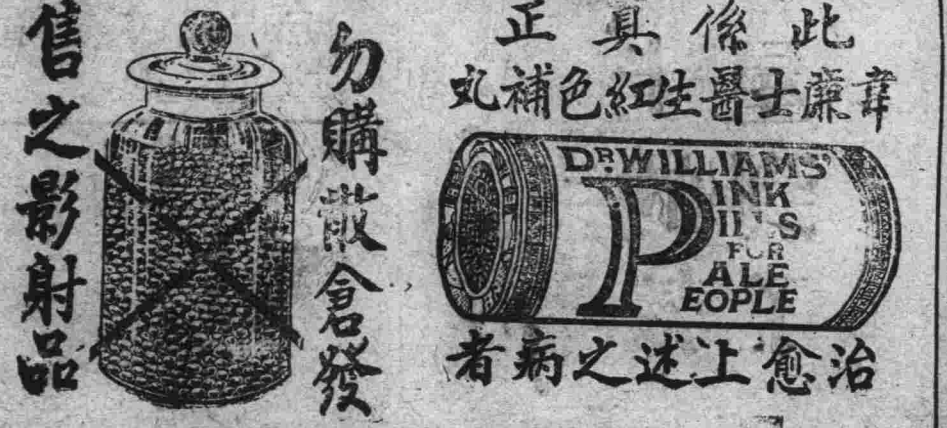 此係真正
韋廉士醫生紅色補丸
DR. WILLIAMS'
PINK
PILLS
FOR
PALE
PEOPLE
治愈上述之病者
勿購散倉發
售之影射品